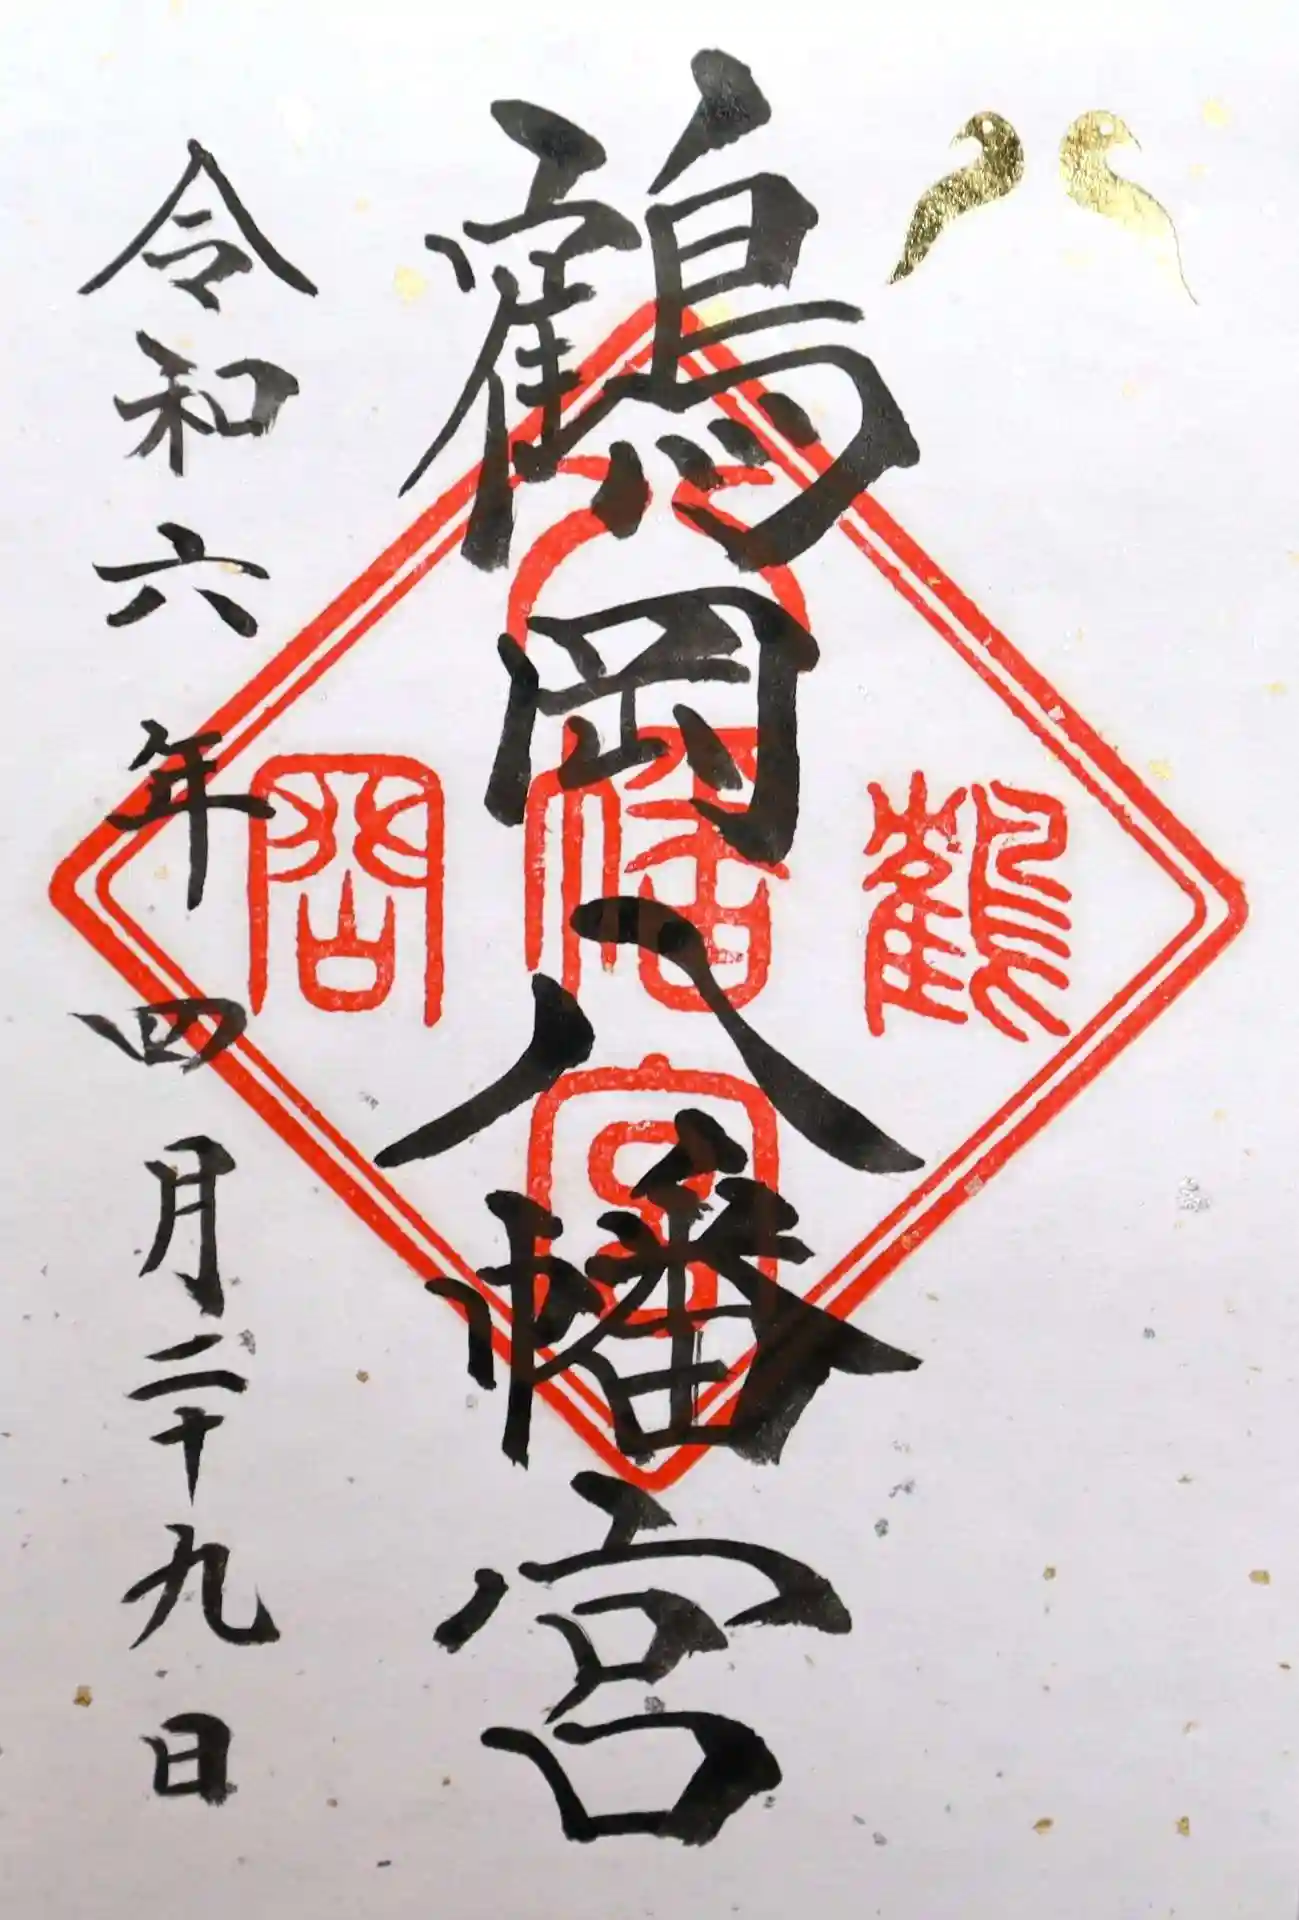 鶴岡八幡宮
令和六年四月二十九日
鶴
八幡宮
岡